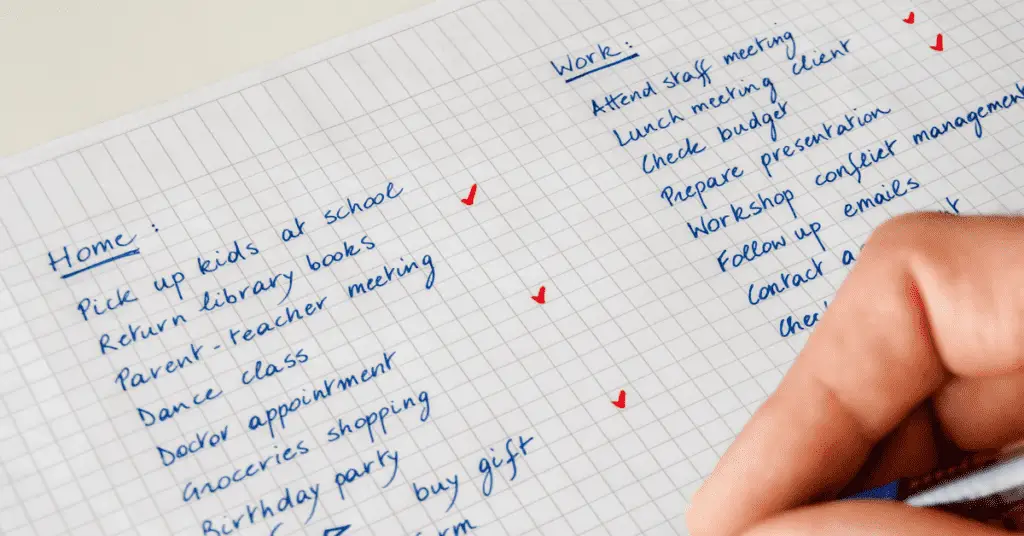 Home :
Pick up kids at school
Return library books
Parent-teacher meeting
Dance class
Doctor appointment
Groceries shopping
Birthday party
buy gift
Work :
Attend staff meeting
Lunch meeting client
Check budget
Prepare presentation
Workshop conflict management
Follow up emails
Contact